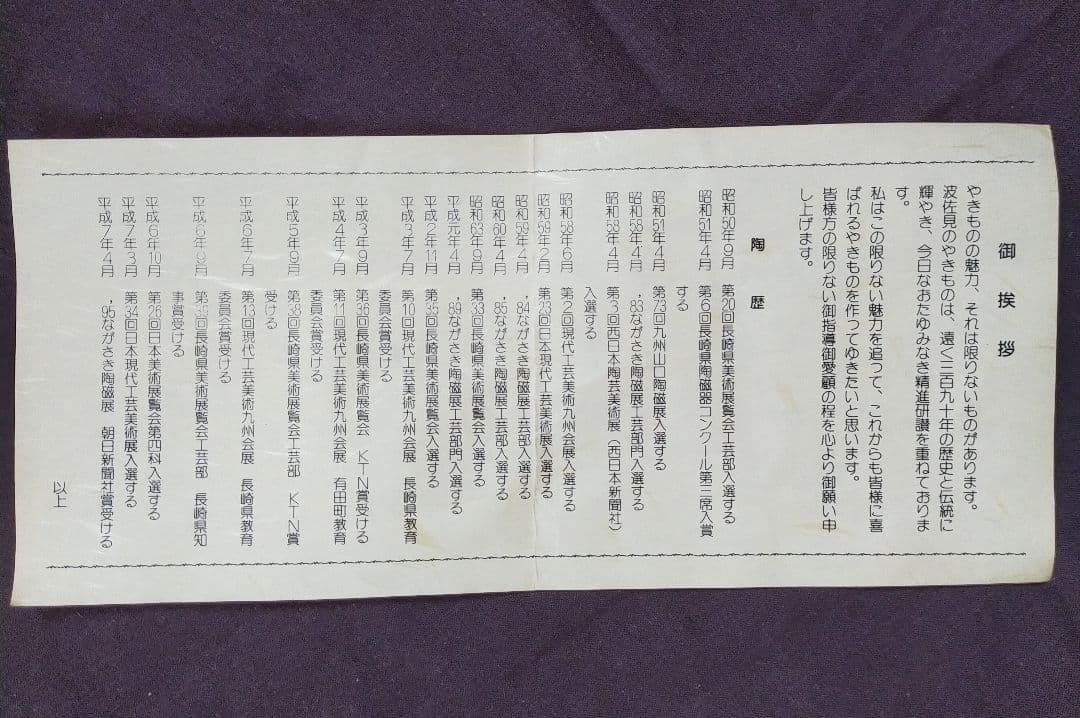 御挨拶
やきものの魅力、それは限りないものがあります。
波佐見のやきものは、遠く三百九十年の歴史と伝統に
輝やき、今日なおたゆみなき精進研讃を重ねておりま
す。
私はこの限りない魅力を追って、これからも皆様に喜
ばれるやきものを作ってゆきたいと思います。
皆様方の限りない御指導御愛顧の程を心より御願い申
し上げます。
陶歴
昭和50年9月 第20回長崎県美術展覧会工芸部入選する
昭和51年4月 第6回長崎県陶磁器コンクール第三席入賞
する
昭和51年4月 第23回九州山口陶磁展入選する
昭和58年4月 ,83ながさき陶磁展工芸部門入選する
昭和58年4月 第3回西日本陶芸美術展（西日本新聞社）
入選する
昭和58年6月 第2回現代工芸美術九州会展入選する
昭和59年2月 第23回日本現代工芸美術展入選する
昭和59年4月 ,84ながさき陶磁展工芸部入選する
昭和60年4月 ,85ながさき陶磁展工芸部入選する
昭和63年9月 第33回長崎県美術展覧会入選する
平成元年4月 ,89ながさき陶磁展工芸部門入選する
平成2年11月 第35回長崎県美術展覧会入選する
平成3年7月 第10回現代工芸美術九州会展 長崎県教育
委員会賞受ける
平成3年9月 第36回長崎県美術展覧会 KTN賞受ける
平成4年7月 第11回現代工芸美術九州会展 有田町教育
委員会賞受ける
平成5年9月 第38回長崎県美術展覧会工芸部 KTN賞
受ける
平成6年7月 第13回現代工芸美術九州会展 長崎県教育
委員会賞受ける
平成6年9月 第39回長崎県美術展覧会工芸部 長崎県知
事賞受ける
平成6年10月 第26回日本美術展覧会第四科入選する
平成7年3月 第34回日本現代工芸美術展入選する
平成7年4月 ,95ながさき陶磁展 朝日新聞社賞受ける
以上